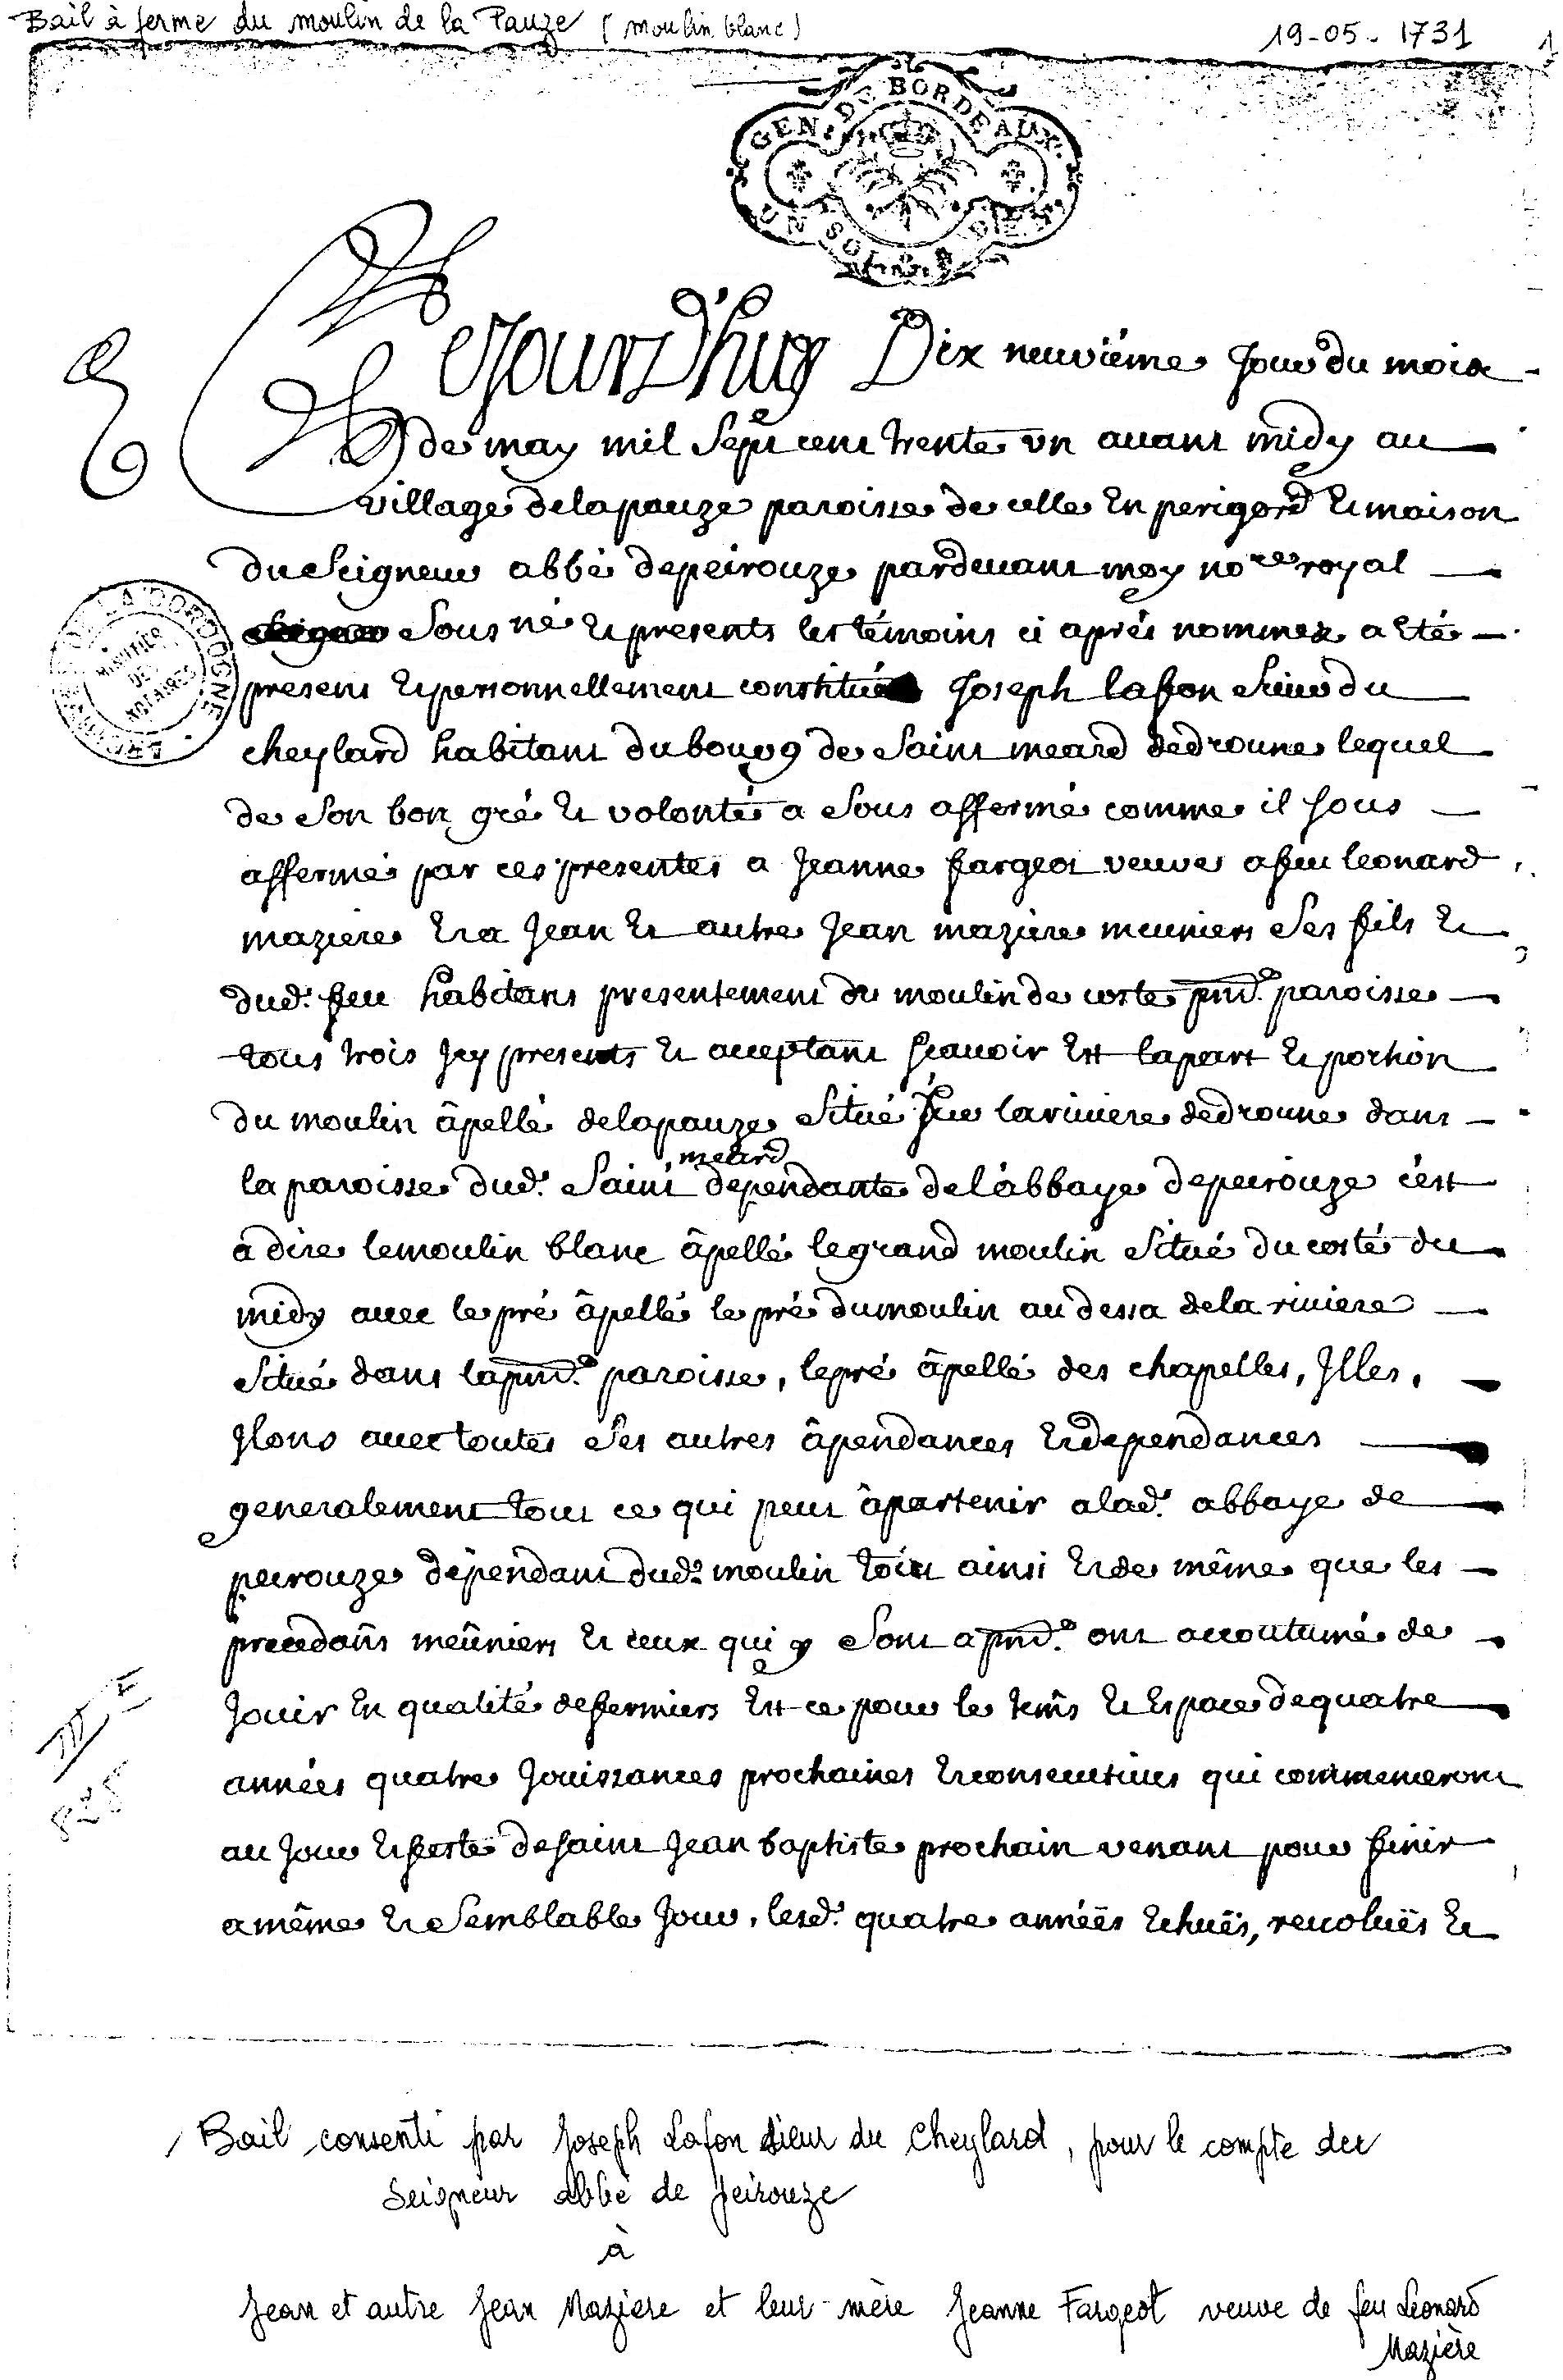 Bail à ferme du moulin de la Pauze (moulin blanc)
19-05-1731
1
GEN. DE BORDEAUX.
UN SOL
Cejourd'huy Dix neuviéme jour du mois
de may mil sept cent trente un avant midy au
village de la pauze paroisse de celle en perigord et maison
du seigneur abbé de peirouze pardevant moy nore royal
sousné et presents les témoins ci aprés nommez a eté
present et personnellement constitué Joseph lafon sieur du
cheylard habitant du bourg de saint meard de droune lequel
de son bon gré et volonté a sous affermé comme il sous
afferme par ces presentes a Jeanne fargeot veuve a feu leonard
maziere et a Jean et autre Jean maziere meuniers ses fils et
dud. feu habitans presentement du moulin de coste pnte. paroisse
tous trois icy presents et acceptant sçavoir est la part et portion
du moulin âpellé de la pauze situé sur la riviere de droune dans
la paroisse dud. saint meard dependante de l'abbaye de peirouze c'est
a dire le moulin blanc âpellé le grand moulin situé du costé du
midy avec le pré âpellé le pré du moulin au dessa de la riviere
situé dans la pnte. paroisse, le pré âpellé des chapelles, Jlles,
Jlons avec toutes ses autres âpendances et dependances
generalement tout ce qui peut âpartenir a lad. abbaye de
peirouze dépendant dud. moulin tout ainsi et de même que les
precedans meûniers et ceux qui y sont a pnt. ont accoutumé de
Jouir en qualité de fermiers est ce pour le tems et espace de quatre
années quatre Jouissances prochaines et consecutives qui commenceront
au Jour et feste de saint Jean baptiste prochain venant pour finir
a même et semblable Jour, lesd. quatre années echuës, revoluës et
ARCHIVES DE LA DORDOGNE
MINUTES
DES
NOTAIRES
III E
Bail consenti par Joseph Lafon sieur du Cheylard, pour le compte du
Seigneur abbé de Peirouze
à
Jean et autre Jean Mazière et leur mère Jeanne Fargeot veuve de feu Léonard
Mazière